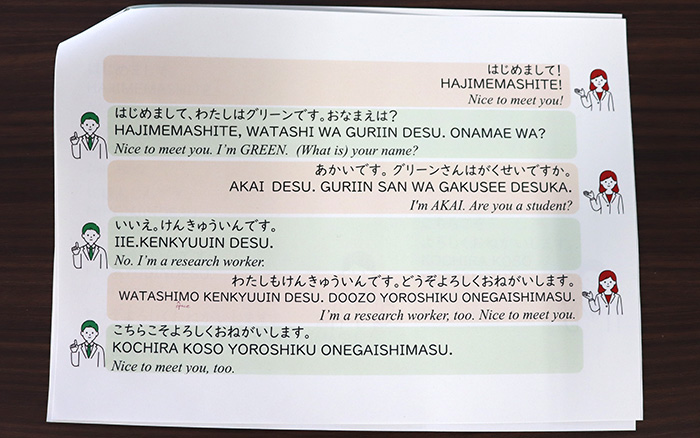 はじめまして!
HAJIMEMASHITE!
Nice to meet you!
はじめまして、わたしはグリーンです。おなまえは?
HAJIMEMASHITE, WATASHI WA GURIIN DESU. ONAMAE WA?
Nice to meet you. I'm GREEN. (What is) your name?
あかいです。グリーンさんはがくせいですか。
AKAI DESU. GURIIN SAN WA GAKUSEE DESUKA.
I'm AKAI. Are you a student?
いいえ。けんきゅういんです。
IIE.KENKYUUIN DESU.
No. I'm a research worker.
わたしもけんきゅういんです。どうぞよろしくおねがいします。
WATASHIMO KENKYUUIN DESU. DOOZO YOROSHIKU ONEGAISHIMASU.
I'm a research worker, too. Nice to meet you.
こちらこそよろしくおねがいします。
KOCHIRA KOSO YOROSHIKU ONEGAISHIMASU.
Nice to meet you, too.